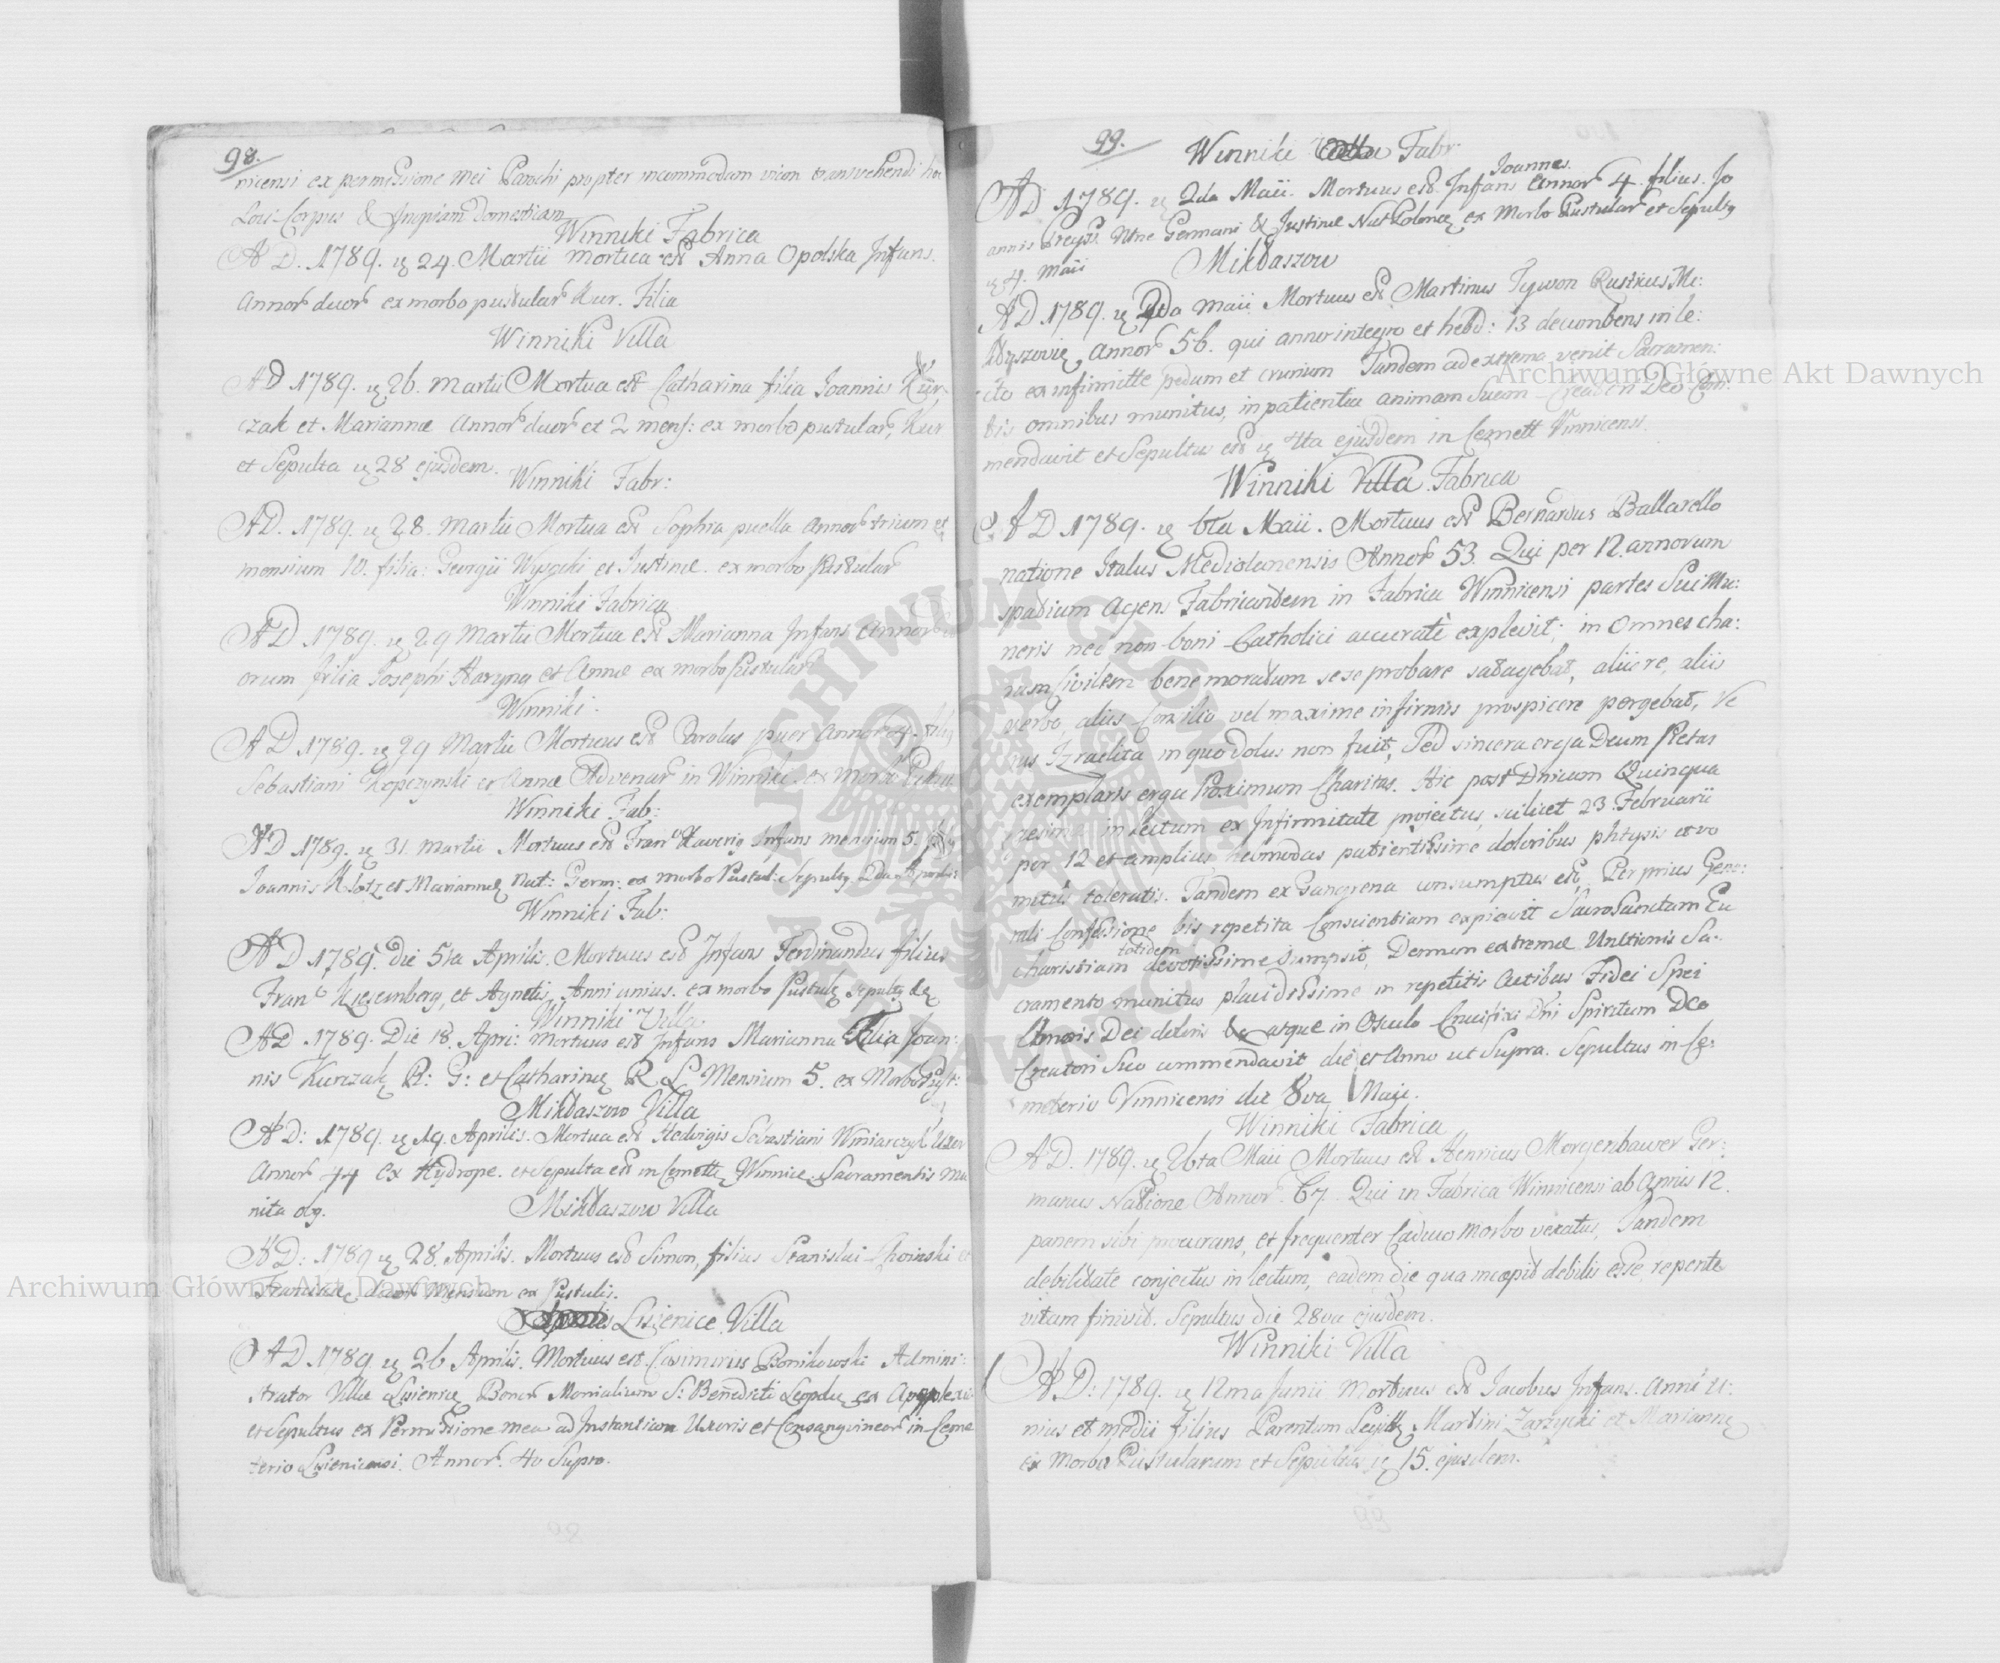 98.
nicensi ex permissione mei Parochi propter incommodum viam transvehendi hoc
Loci Corpus & Inopiam domesticam
Winniki Fabrica
A D. 1789. 24. Martii mortua est Anna Opolska Infans.
Annor duor ex morbo pustular Kur. Filia
Winniki Villa
A D 1789. 26. Martii Mortua est Catharina filia Joannis Kur,
czak et Mariannæ Annor duor et 2 mens: ex morbo pustular, Kur
et Sepulta 28 ejusdem.
Winniki Fabr:
A D. 1789. 28. Martii Mortua est Sophia puella Annor trium et
mensium 10. filia: Georgii Wysocki et Justinæ. ex morbo Pustular
Winniki Fabrica
A D 1789. 29 Martii Mortua est Marianna Infans Annor
orum filia Josephi et Annæ ex morbo Pustular
Winniki.
A D 1789. 29 Martii Mortuus est Carolus puer Annor 4.
Sebastiani Kopczynski et Annæ Advenar in Winniki. ex morb
Winniki Fab:
A D 1789. 31. Martii Mortuus est Fran Xaverig Infans mensium 5.
Joannis Klotz et Mariannæ Nat: Germ: ex morbo Pustul: Sepultg 2da Aprilis
Winniki Fab:
A D 1789. Die 5ta Aprilis. Mortuus est Infans Ferdinandus filius
Franc et Agnetis, Anni unius. ex morbo Pustulæ Sepultg
Winniki Villa
A D. 1789. Die 18. Apri: Mortuus est Infans Marianna Filia Joan:
nis Kurczak R: G: et Catharinæ R L Mensium 5. ex Morbo Pust:
Mikłaszow Villa
A D: 1789. 19. Aprilis. Mortua est Hedvigis Sebastiani Winiarczyk Uxor
Annor 44 ex Hydrope. et Sepulta est in Cemett Winnice: Sacramentis mu
nita olg.
Mikłaszow Villa
A D: 1789 28. Aprilis. Mortuus est Simon, filius Stanislai Choinski et
Franciscæ duor Mensium ex Pustulis.
Lisienice Villa
A D 1789. 26 Aprilis. Mortuus est Casimirus Bonikowski Admini:
strator Villæ Lisienicæ Bonor Monialium S: Benedicti Leopolæ ex Apoplexi
et Sepultus ex Permissione mea ad Instantiam Uxoris et Consangvineor in Ceme
terio Lisienicensi. Annor. 40 Supra.
99.
Winniki Fabr.
Joannes.
A D 1789. 2da Maii. Mortuus est Infans Annor 4. filius Jo
annis Ntne Germani & Justinæ Nat Polonæ, ex Morbo Pustular et Sepultg
4. Maii
Mikłaszow
A D 1789. 2do Maii Mortuus est Martinus Rusticus Mi:
kłaszoviæ Annor 56. qui anno integro et hebd: 13 decumbens in le:
cto ex infirmitte pedum et crurium Tandem ad extrema venit Sacramen:
tis omnibus munitus, in patientia animam Suam Creatori Deo Com:
mendavit et Sepultus est 4ta ejusdem in Cemett Vinnicensi.
Winniki Villa Fabrica
A D 1789. 6ta Maii. Mortuus est Bernardus Ballarello
natione Italus Mediolanensis Annor 53. Qui per 12. annorum
spatium agens Fabricantem in Fabrica Winnicensi partes Sui Mu:
neris nec non boni Catholici accuratè explevit; in Omnes cha:
rum Civilem bene moratum sese probare satagebat, alii re, alii
verbo, aliis Consilio vel maxime infirmis prospicere pergebat, Ve
rus Izraelita in quo dolus non fuit, Sed sincera erga Deum Pietas
exemplaris erga Proximum Charitas. Hic post Dnicam Quinqua
gesima in lectum ex Infirmitate projectus, scilicet 23. Februarii
per 12 et amplius hebmodas patientissime doloribus phtysis et vo
mitus toleratis. Tandem ex Gangrena consumptus est, Per prius Gene:
rali Confessione bis repetita Conscientiam expiavit Sacro Sanctam Eu
charistiam totidem devotissime sumpsit, Demum extremæ Unctionis Sa:
cramento munitus placidissime in repetitis Actibus Fidei Spei
Amoris Dei doloris atque in Osculo Crucifixi Dni Spiritum Deo
Creatori Suo commendavit die et Anno ut Supra. Sepultus in Ce:
meterio Vinnicensi die 8va Maii.
Winniki Fabrica
A D. 1789. 26ta Maii Mortuus est Henricus Morgenbawer Ger:
manus Natione Annor. 67. Qui in Fabrica Winnicensi ab Annis 12.
panem sibi procurans, et frequenter Caduco morbo vexatus, Tandem
debilitate conjectus in lectum, eadem die qua incæpit debilis esse, repente
vitam finivit. Sepultus die 28va ejusdem.
Winniki Villa
A D: 1789. 12ma Junii Mortuus est Jacobus Infans. Anni u:
nius et medii filius Parentum Legitt. Martini Zarzycki et Mariannæ
ex Morbo Pustularum et Sepultus 15. ejusdem.
Archiwum Główne Akt Dawnych
Archiwum Główne Akt Dawnych
ARCHIWUM GŁÓWNE AKT DAWNYCH